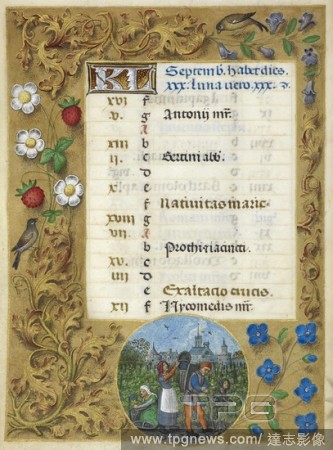 KL Septemb. habet dies.
xxx. Luna vero. xxx. d.
xvi f
v. g Antonii mr.
A
xiii b
ii. c Bertini abb.
d
e
xviii f Nativitas marie.
vii. g
A
b Prothi. iacincti.
xv. c
iiii d
e Exaltacio crucis.
xii f Nycomedis mr.
TPG
www.tpgnews.com/ 達志影像